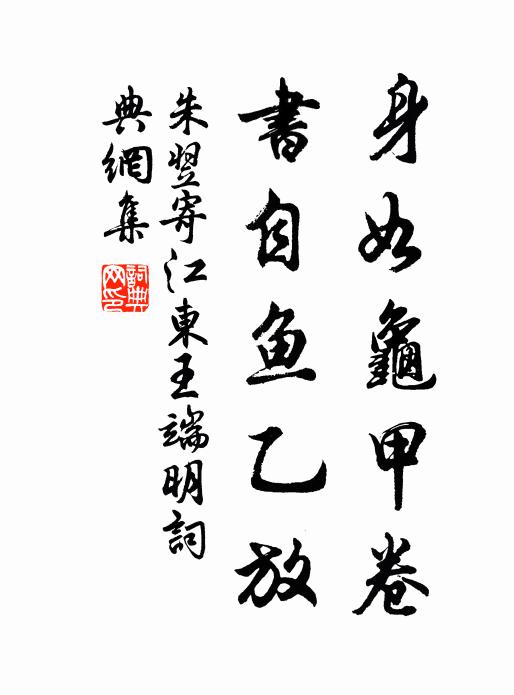 身如龜甲卷
書自魚乙放
朱翌寄江東王端明詞
典網集
詞典网印